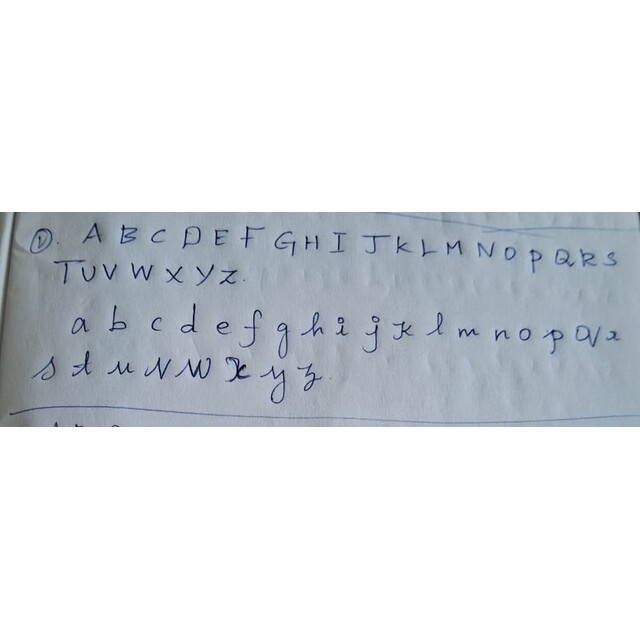 ①. A B C D E F G H I J K L M N O P Q R S
T U V W X Y Z.
a b c d e f g h i j k l m n o p q r
s t u v w x y z.